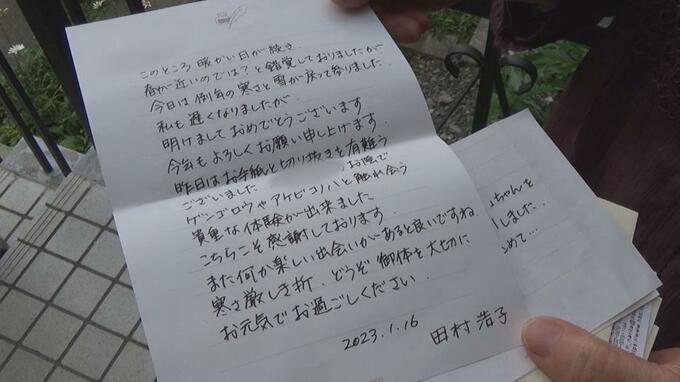 このところ 暖かい日が続き.
春が近いのでは?と錯覚しておりましたが
今日は例年の寒さと雪が戻って参りました.
私も遅くなりましたが.
明けましておめでとうございます
今年もよろしくお願い申し上げます.
昨日はお手紙と切り抜きを有難う
ございました お陰で
ゲンゴロウやアケビコノハと触れ合う
貴重な体験が出来ました
こちらこそ感謝しております.
また何か楽しい出会いがあると良いですね.
寒さ厳しき折. どうぞ御体を大切に
お元気でお過ごしください.
2023.1.16
田村 浩子
ちゃんを
しました...
めて...